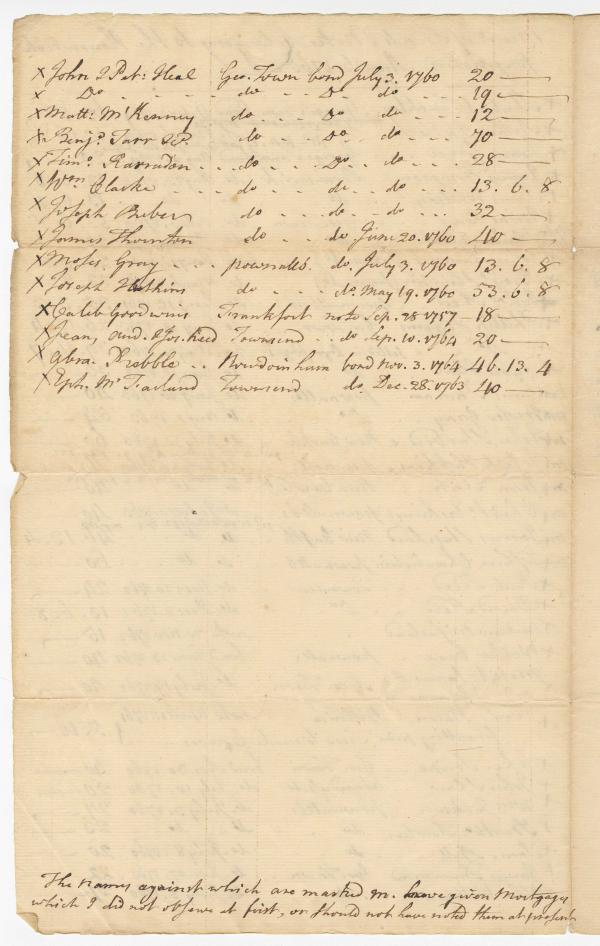 x John & Pat: Heal Geo. Town bond July 3. 1760 20 —
x Do - - - do - - Do - do - - - 19 —
x Matt: McKenney do - - Do do - - - 12 —
x Benj.n Tarr do - - Do - do - - - 70 —
x Tim.o - - - do - - Do - - do - - - 28 —
x Wm Clarke - - - do - - do - - do - - - 13. 6. 8
x Joseph Beber do - - do - - do - - - 32 —
x James Thornton do - - do June 20. 1760 40 —
x Moses Gray - - - pownallbo. do. July 3. 1760 13. 6. 8
x Joseph Hutkins do - - do May 19. 1760 53. 6. 8
x Caleb Goodwins Frankfort note Sep. 28 1757 - 18 —
x Jean, and. & Jos. Reed Townsend - - do Sep. 10. 1764 20 —
x Abra. Prebble - - Bowdoinham bond Nov. 3. 1764 46. 13. 4
x Eph. McFarland Townsend do. Dec. 28. 1763 40 —
The names against which are marked m. have given Mortgages
which I did not observe at first, or should not have noted them at present